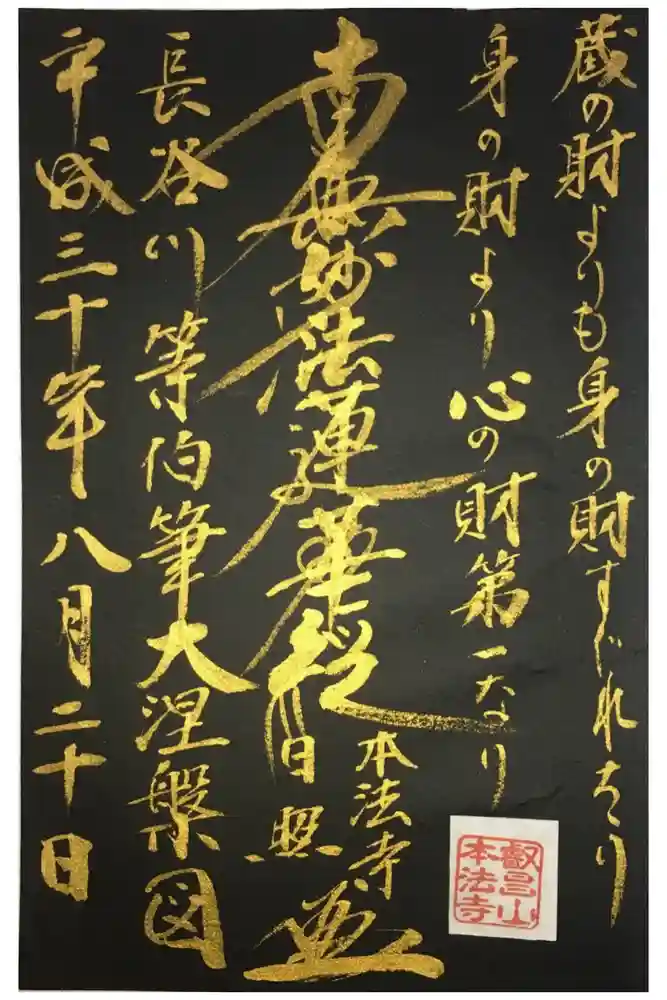 蔵の財よりも身の財すぐれたり
身の財より心の財第一なり
南無妙法蓮華経
本法寺
日照
長谷川等伯筆大涅槃図
平成三十年八月二十日
叡昌山
本法寺